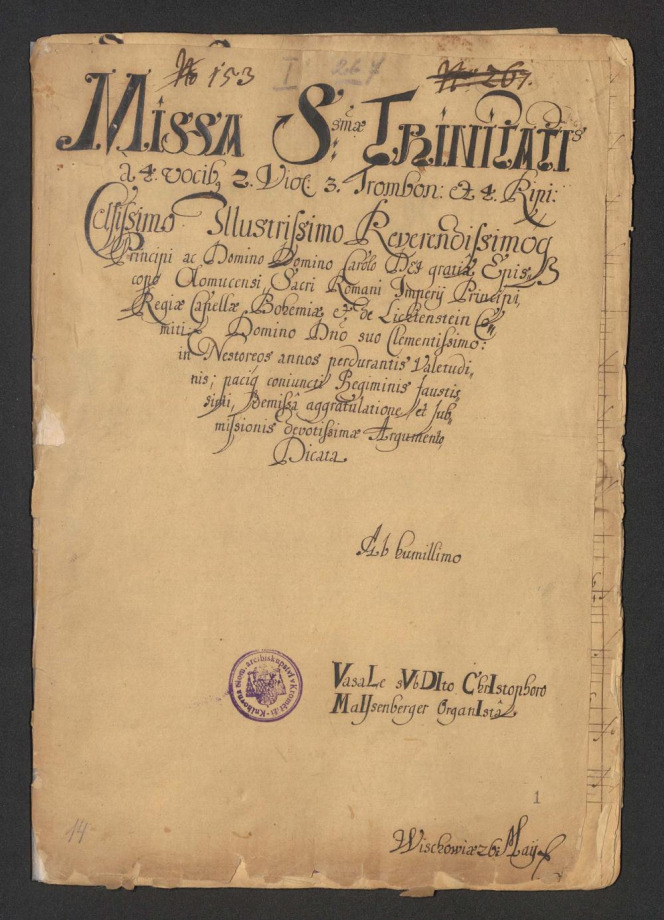 No 153 I 267 No 267.
Missa S:smæ Trinitatis
à 4. vocib, 2. Viol: 3. Trombon: et 4. Ripi:
Celsissimo Illustrissimo Reverendissimoq
Principi ac Domino Domino Carolo Dei gratia Epis-
copo Olomucensi, Sacri Romani Imperij Principi,
Regiæ Capellæ Bohemiæ et de Lichtenstein Co-
miti: Domino Dnō suo Clementissimo:
in Nestoreos annos perdurantis Valetudi,
nis; paciq coniuncti Regiminis faustis
simi, Demissâ aggratulatione, et sub,
missionis devotissimæ Argumento,
Dicata
Ab humillimo
VasaLe sVbDIto ChrIstophoro
MaIJsenberger OrganIstâ
Knihovna hlom. arcibiskupství v Kroměříži
1
14
Wischowiæ 26 Maij